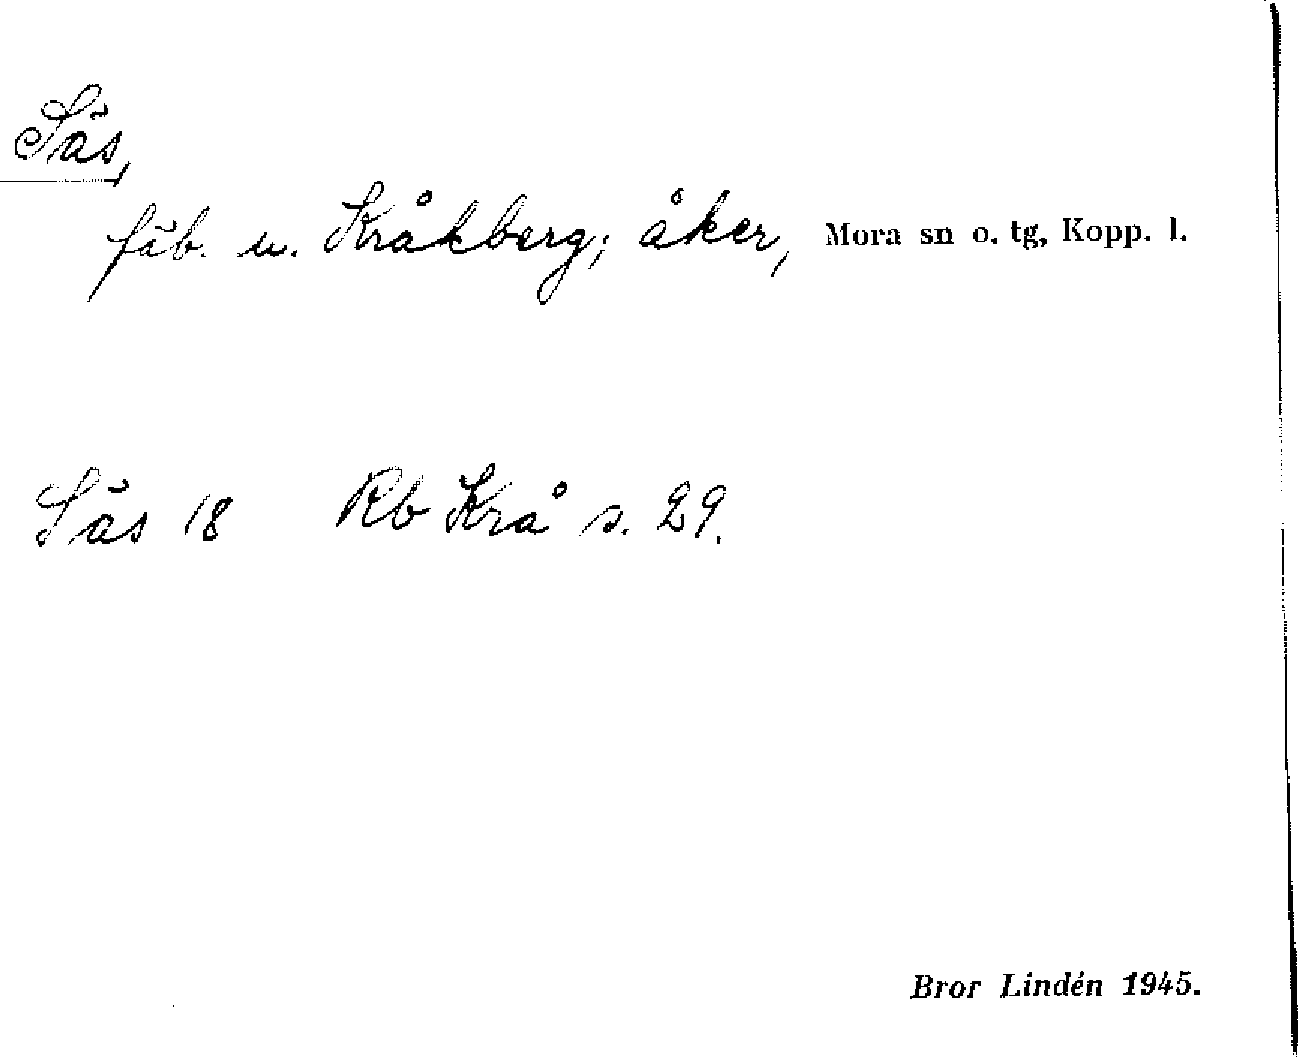 Säs,
fäb. u. Kråkberg; åker, Mora sn o. tg, Kopp. l.
Säs 18 Rb Krå s. 29.
Bror Lindén 1945.